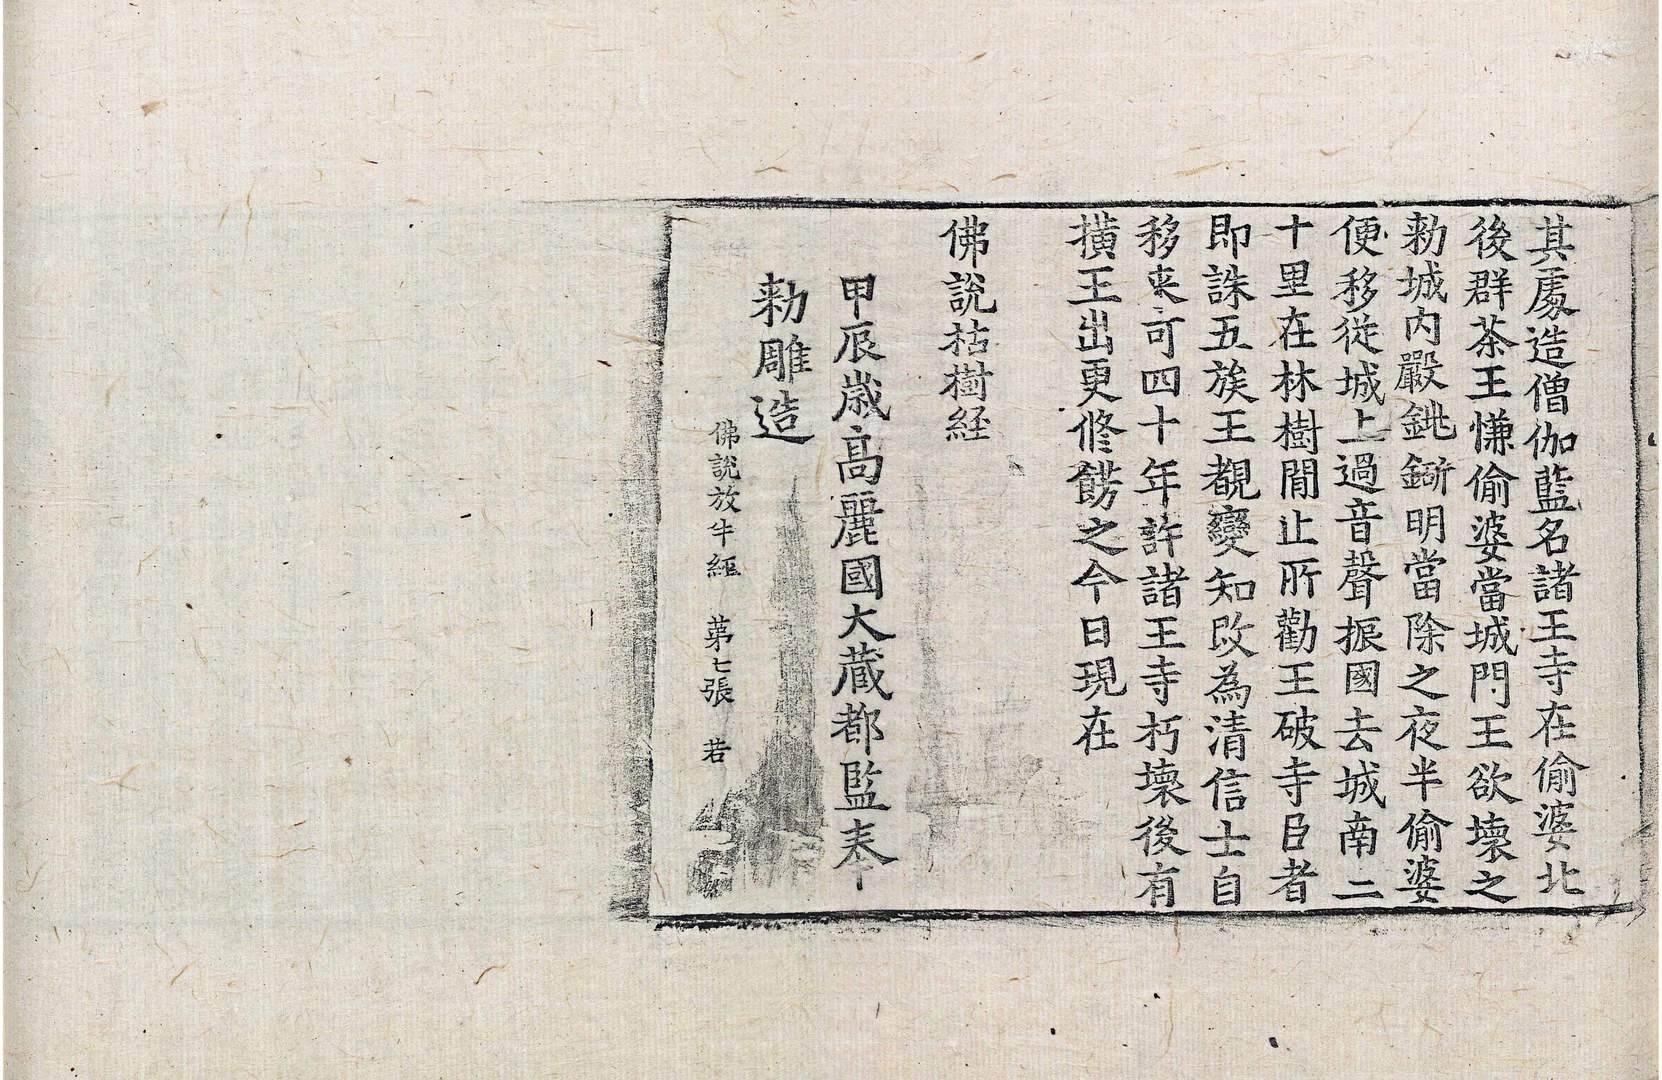 其處造僧伽藍名諸王寺在偷婆北
後群茶王慊偷婆當城門王欲壞之
勑城内嚴銚鎒明當除之夜半偷婆
便移從城上過音聲振國去城南二
十里在林樹閒止所勸王破寺臣者
即誅五族王覩變知改為清信士自
移来可四十年許諸王寺朽壞後有
撗王出更修餝之今日現在
佛說枯樹経
甲辰歳高麗國大蔵都監奉
勑雕造
佛說放牛經 第七張 若